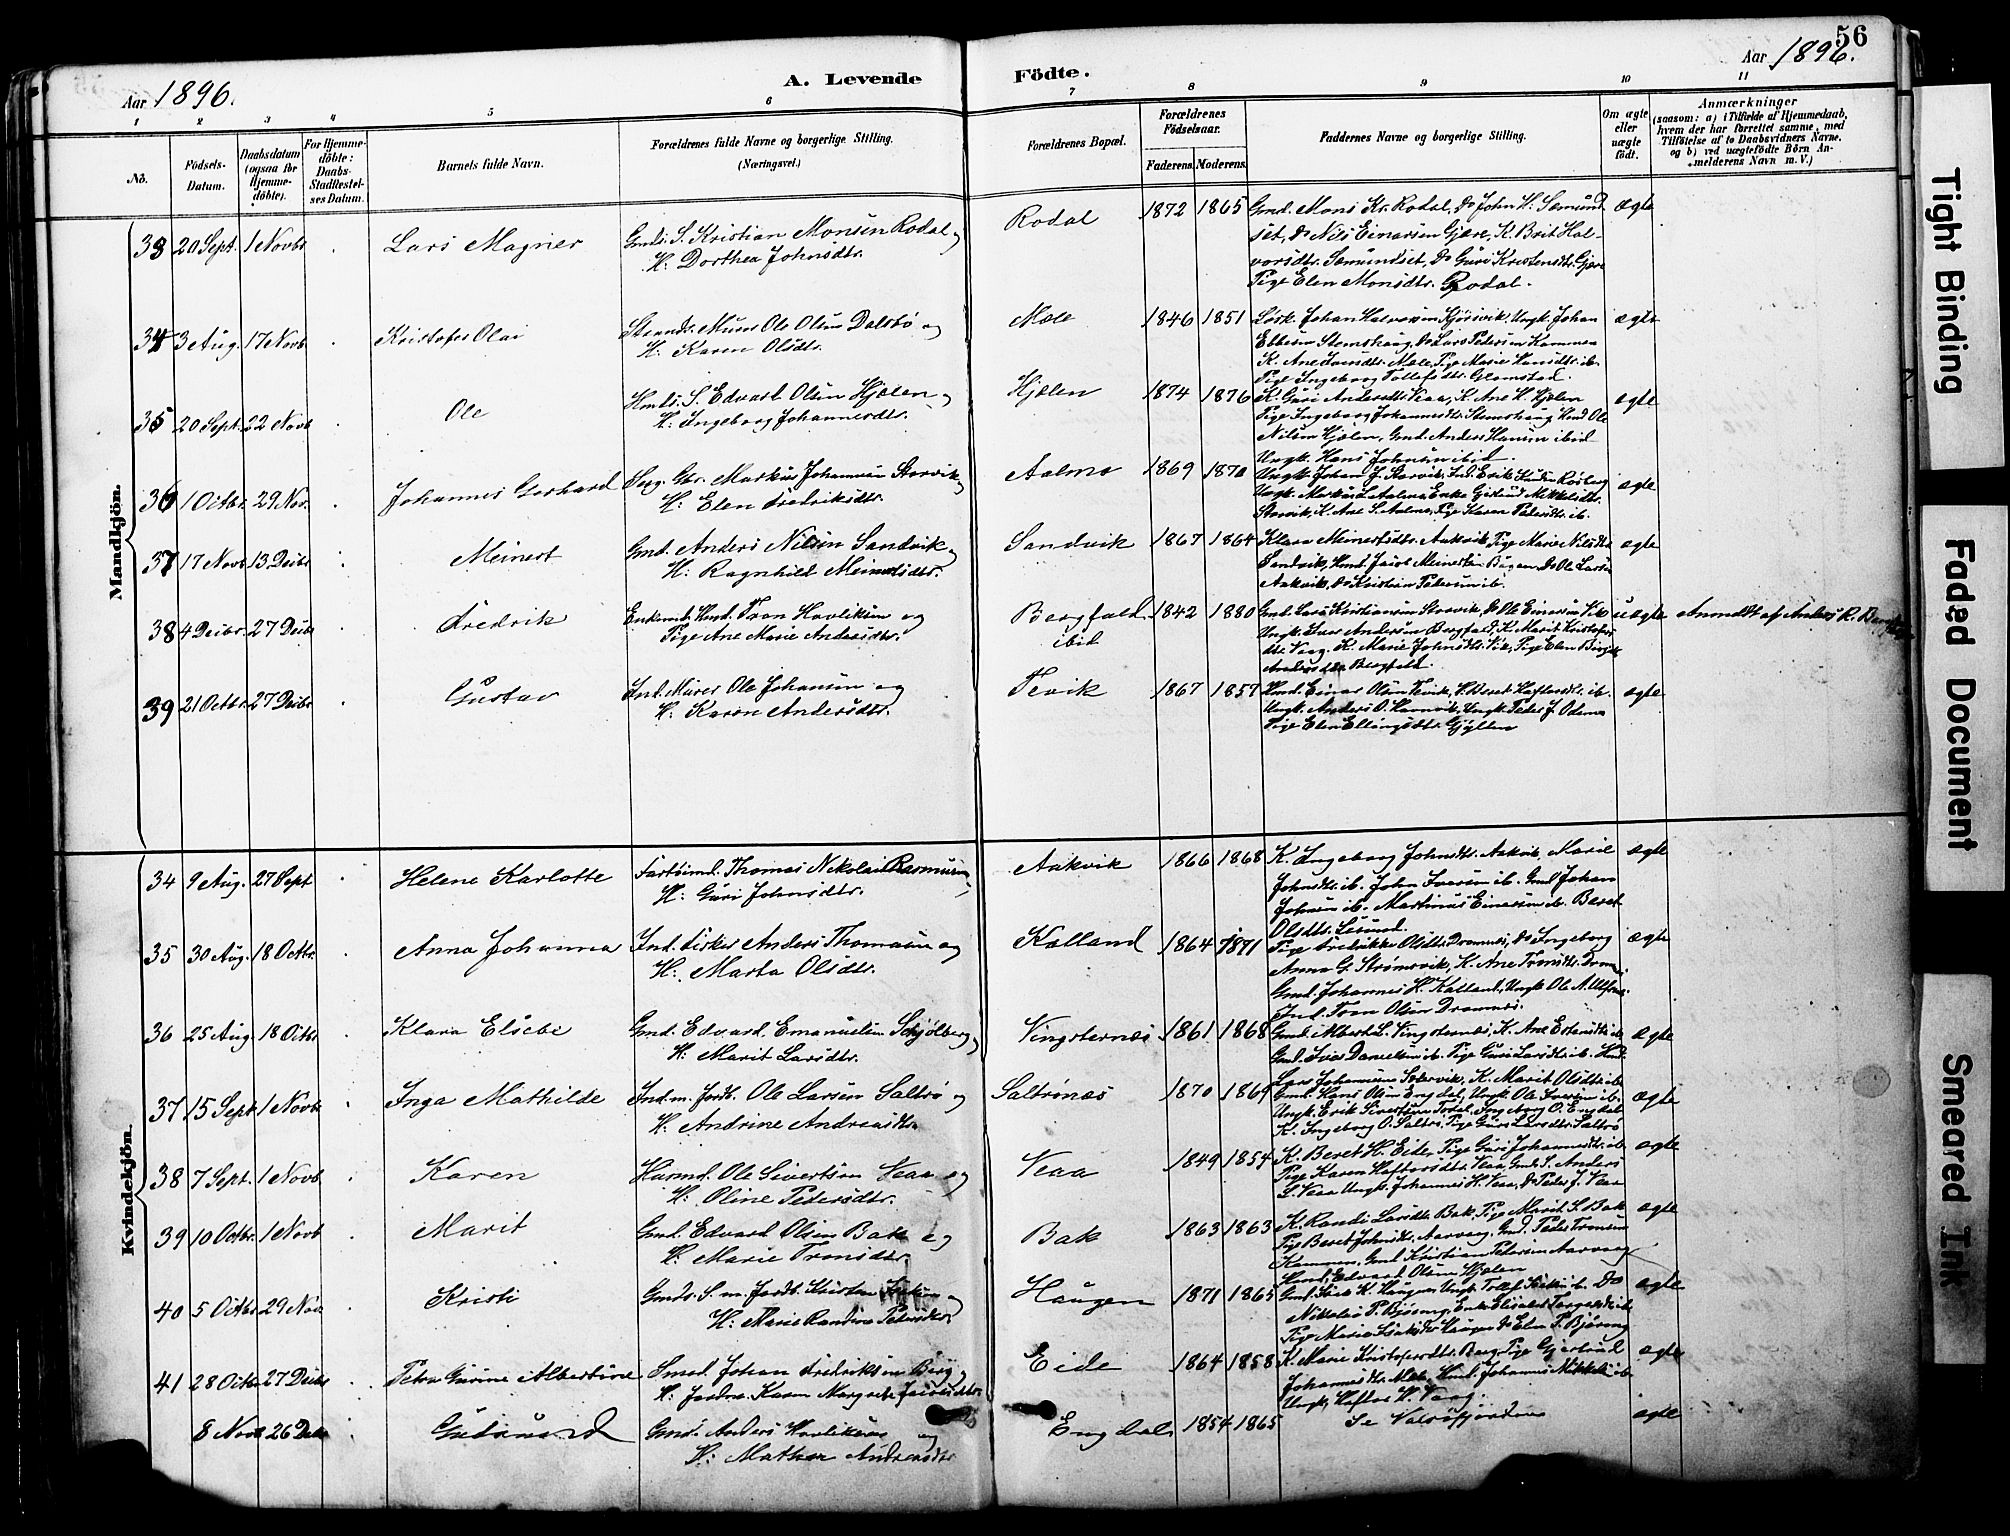 56
Aar 1896.
A. Levende Födte.
Aar 1896.
1 2 3 4 5 6 7 8 9 10 11
No.
Födsels-
Datum.
Daabsdatum
(ogsaa for
Hjemme-
döbte).
For Hjemme-
döbte:
Daabs-
Stadfæstel-
ses Datum.
Barnets fulde Navn.
Forældrenes fulde Navne og borgerlige Stilling.
(Næringsvei.)
Forældrenes Bopæl.
Forældrenes
Födselsaar.
Faderens. Moderens.
Faddernes Navne og borgerlige Stilling.
Om ægte
eller
uægte
födt.
Anmærkninger
(saasom: a) i Tilfælde af Hjemmedaab,
hvem der har forrettet samme, med
Tilföielse af to Daabsvidners Navne,
og b) ved uægtefödte Börn An-
melderens Navn m. V.)
Mandkjön.
33 20 Sept. 1 Novbr Lars Magner
Gmds. S. Kristian Monsen Rodal og
H: Dorthea Johnsdtr.
Rodal 1872 1865
Gmd. Mons Kr. Rodal, Do John H. Sæmund
set, Do Nils Einarsen Gjære, K. Brit Hal-
vorsdtr. Sæmundset, Do Guri Kristensdtr. Gjære
Pige Elen Monsdtr. Rodal.
ægte
34 3 Aug. 17 Novb Kristofer Olai
Strands. Murer Ole Olsen Dalsbø og
H. Karen Olsdtr.
Mæle 1846 1851
Løsk. Johan Halvorsen Kjørsvik, Ungk. Johan
Ellevsen Stemshaug, Do Lars Pedersen Kammen
K. Ane Iversdtr. Mæle, Pige Marie Hansdtr. ib.
Pige Ingeborg Tollefsdtr. Glamstad.
ægte
35 20 Sept. 22 Novb Ole
Hmds. S. Edvard Olsen Hjælen og
H. Ingeborg Johannesdtr.
Hjælen 1874 1876
K. Guri Andersdtr. Veaa, K. Ane H. Hjælen
Pige Ingeborg Johannesdtr. Stemshaug Hmd Ole
Nilsen Hjælen, Gmd. Anders Hansen ibid
Ungk. Hans Johnsen ibid.
ægte
36 1 Octbr. 29 Nov. Johannes Gerhard
Gbr. Markus Johannsen Storvik og
H: Elen Fredriksdtr.
Aalmo 1869 1870
Ungk. Johan J. Storvik, Ind. Erik Rosberg
Ungk. Markus L. Aalmo, Enke Gjertrud Mikkelsdtr.
Storvik, K. Ane S. Aalmo, Pige Karen Pedersdtr. ib.
ægte
37 17 Novb 13 Decbr Meinert
Gmd. Anders Nilsen Sandvik og
H: Ragnhild Meinertsdtr.
Sandvik 1867 1864
Klara Meinertsdtr. Aakvik, Pige Marie Nilsdtr.
Sandvik, Hmd. Jacob Meinertsen Bøgen, Do Ole Larsen
Aakvik, Do Kristian Pedersen ib.
ægte
38 4 Decbr. 27 Decbr Fredrik
Enkemd. Hmd. Tron Havliksen og
Pige Ane Marie Andersdtr.
Bergfald
ibid
1842 1880
Gmd. Lars Kristiansen Storvik, Do Ole Einersen Vik
Ungk. Iver Andersen Bergfald, K. Marit Kristofers
dtr. Vaag. K. Marie Johnsdtr. Vik, Pige Elen Birgit
Andersdtr. Bergfald.
uægte Anmeldt af Anders R. Bergfald
39 21 Octbr. 27 Decbr Gustav
Ind. Murer Ole Johansen og
H: Karen Andersdtr.
Tevik 1867 1857
Hmd. Einar Olsen Tevik, H. Beret Haftorsdtr. ib.
Ungk. Anders O. Hamvik, Ungk. Peder J. Odemo
Pige Elen Ellingsdtr. Gjylten
ægte
Kvindekjön.
34 9 Aug. 27 Sept Helene Karlotte
Fartøimd. Thomas Nikolai Rasmussen og
H: Guri Johnsdtr.
Aakvik 1866 1868
K. Ingeborg Johnsdtr. Aakvik, Marie
Johnsdtr. ib. John Iversen ib. Gmd Johan
Johnsen ib. Martinus Einersen ib. Beret
Olsdtr. Lesund.
ægte
35 30 Aug. 18 Octbr. Anna Johanna
Ind. Fisker Anders Thomasen og
H: Marta Olsdtr.
Kalland 1864 1871
Pige Fredrikke Olsdtr. Dromnes, Do Ingeborg
Anna G. Strømsvik, K. Ane Tronsdtr. Dromnes
Gmd. Johannes H. Kalland, Ungk. Ole A.
Ind. Tron Olsen Dromnes.
ægte
36 25 Aug. 18 Octbr Klara Elsebe
Gmd. Edvard Emanuelsen Schjølberg og
H: Marit Larsdtr.
Vingsternes 1861 1868
Gmd. Albert L. Vingsternes, K. Ane ib
Gmd. Iver Danielsen ib. Pige Guri Larsdtr. ib. Hmd.
Lars Johannsen Solervik, K. Marit Olsdtr. ib
ægte
37 15 Sept 1 Novb Inga Mathilde
Ind. m. Jord. Ole Larsen Saltrø og
H. Andrine Andreasdtr.
Saltrønæs 1870 1869
Gmd. Hans Olsen Engdal, Ungk. Ole Iversen ib.
Ungk. Erik Sivertsen Todal, Ingeborg O. Engdal
K. Ingeborg O. Saltrø, Pige Guri Larsdtr. Saltrø
ægte
38 7 Sept. 1 Novb Karen
Husmd. Ole Sivertsen Veaa og
H: Oline Pedersdtr.
Veaa 1849 1854
K. Beret H. Eide, Pige Guri Johannesdtr. ib
Pige Karen Haftorsdtr. Veaa, Gmd. S. Anders
L. Veaa Ungk. Johannes H. Veaa, Do Peder J. Veaa
ægte
39 10 Octbr. 1 Novb Marit
Gmd. Edvard Olsen Bak og
H. Marie Tronsdtr.
Bak 1863 1863
K. Randi Larsdtr. Bak, Pige Marit S. Bak
Pige Beret Johnsdtr. Aarvaag, Gmd. Peder Tronsen
Kammen, Gmd. Kristian Pedersen Aarvaag
Hmd. Edvard Olsen Hjælen
ægte
40 5 Octbr 29 Nov. Kristi
Gmds. S. m. Jord. Kristen og
H: Marie Randine Pedersdtr.
Haugen 1871 1865
Gmd. K. Haugen, Ungk. Tollef ib. Do
Nikolai P. Bjøreng, Enke Elisabet
Pige Marie Haugen Do Elen P. Bjøreng
ægte
41 28 Octbr 27 Decbr Petra Gurine Albertine
Smed. Johan Fredriksen Berg og
H. Jordm. Karen Margrete
Eide 1864 1858
K. Marie Kristofersdtr. Berg, Pige Gjertrud
Johannesdtr. Mæle, Hmd. Johannes Mikkelsen ib.
Ungk. Haftor H. Vaag.
ægte
8 Novbr 26 Decbr Gudrund
Gmd. Anders Havliksen og
H: Mathea Andreasdtr
Engdal 1854 1865
Se Valsøfjorden
ægte
Tight Binding
Faded Document
Smeared Ink